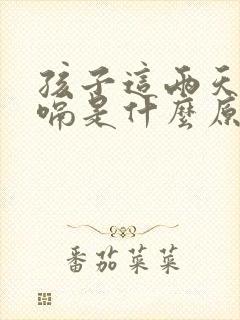 孩子這兩天
嗝是什麼原
番茄菜菜